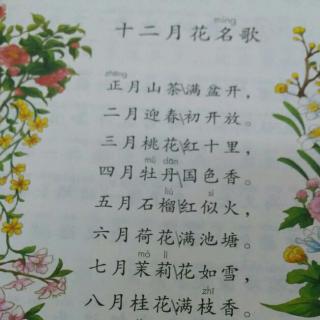 míng
十二月花名歌
zhēng
正月山茶\满盆开，
二月迎春\初开放。
三月桃花\红十里，
mǔ dān
四月牡丹\国色香。
liú sì
五月石榴\红似火，
六月荷花\满池塘。
mò lì
七月茉莉\花如雪，
zhī
八月桂花\满枝香。